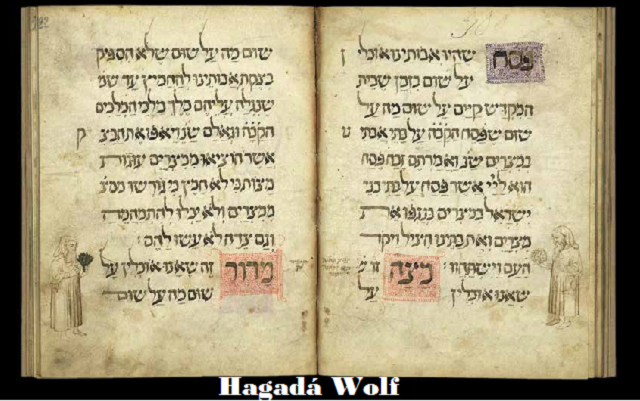 פסח שהיו אבותינו אוכלי ן
על שום בזמן שבית
המקדש קיים על שום מה על
שום שפסח הקבה על בתי אבתי
במצרים שנ ואמרתם זבח פסח
הוא ליי אשר פסח על בתי בני
ישראל במצרים בנגפו את
מצרים ואת בתינו הציל ויקד
העם וישתחוו מצה זו
שאנו אוכלין על
שום מה על שום שלא הספיק
בצקת אבותינו להחמיץ עד שנ
שנגלה עליהם מלך מלכי המלכים
הקבה וגאלם שנ ויאפו את הבצ ק
אשר הוציאו ממצרים עוגות
מצות כי לא חמץ כי גורשו ממצ
ממצרים ולא יכלו להתמהמה
וגם צדה לא עשו להם:
מרור זה שאנו אוכלין על
שום מה על שום
Hagadá Wolf